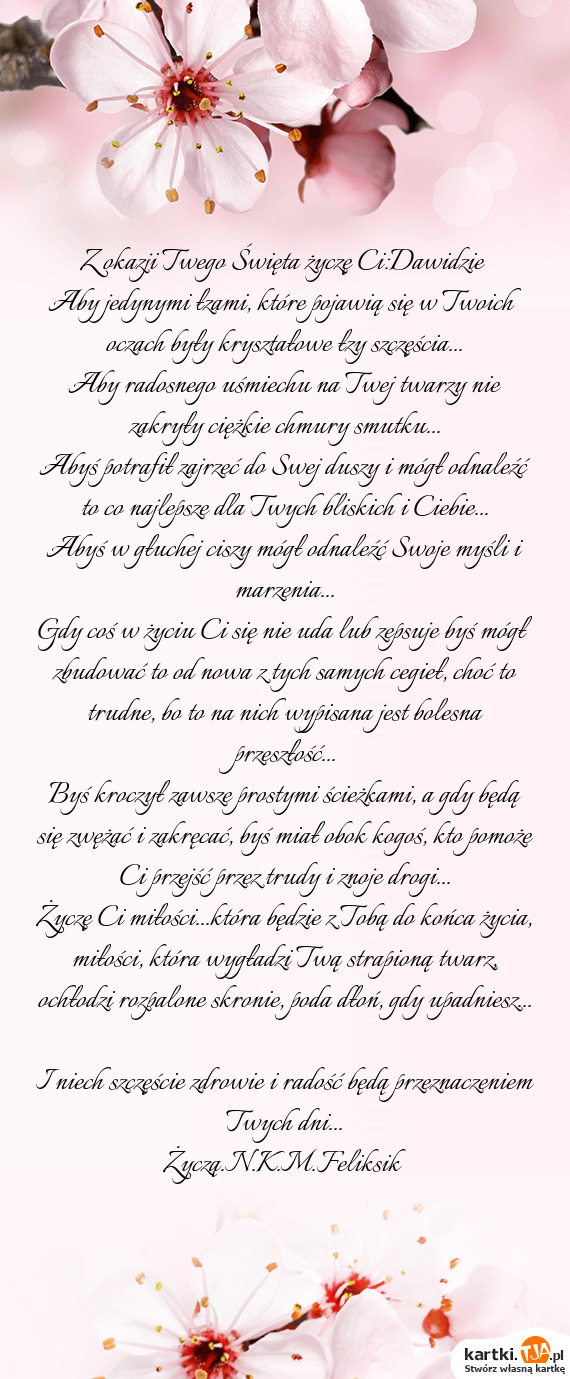 Z okazji Twego Święta życzę Ci:Dawidzie
Aby jedynymi łzami, które pojawią się w Twoich
oczach były kryształowe łzy szczęścia...
Aby radosnego uśmiechu na Twej twarzy nie
zakryły ciężkie chmury smutku...
Abyś potrafił zajrzeć do Swej duszy i mógł odnaleźć
to co najlepsze dla Twych bliskich i Ciebie...
Abyś w głuchej ciszy mógł odnaleźć Swoje myśli i
marzenia...
Gdy coś w życiu Ci się nie uda lub zepsuje byś mógł
zbudować to od nowa z tych samych cegieł, choć to
trudne, bo to na nich wypisana jest bolesna
przeszłość...
Byś kroczył zawsze prostymi ścieżkami, a gdy będą
się zwężać i zakręcać, byś miał obok kogoś, kto pomoże
Ci przejść przez trudy i znoje drogi...
Życzę Ci miłości...która będzie z Tobą do końca życia,
miłości, która wygładzi Twą strapioną twarz,
ochłodzi rozpalone skronie, poda dłoń, gdy upadniesz...
I niech szczęście zdrowie i radość będą przeznaczeniem
Twych dni...
Życzą.N.K.M.Feliksik
kartki.TJA.pl
Stwórz własną kartkę